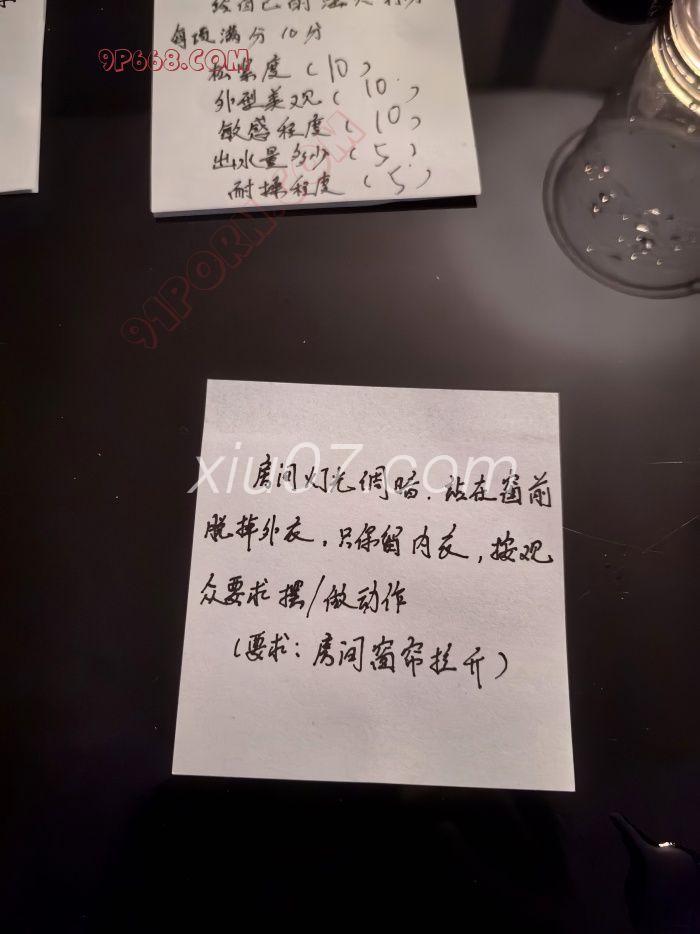 给自己的
每项满分10分
9P668.COM
松紧度（10）
外型美观（10）
敏感程度（10）
出水量多少（5）
耐操程度（5）
91PORN.COM
xiu07.com
房间灯光调暗．站在窗前
脱掉外衣，只保留内衣，按观
众要求摆/做动作
（要求：房间窗帘拉开）